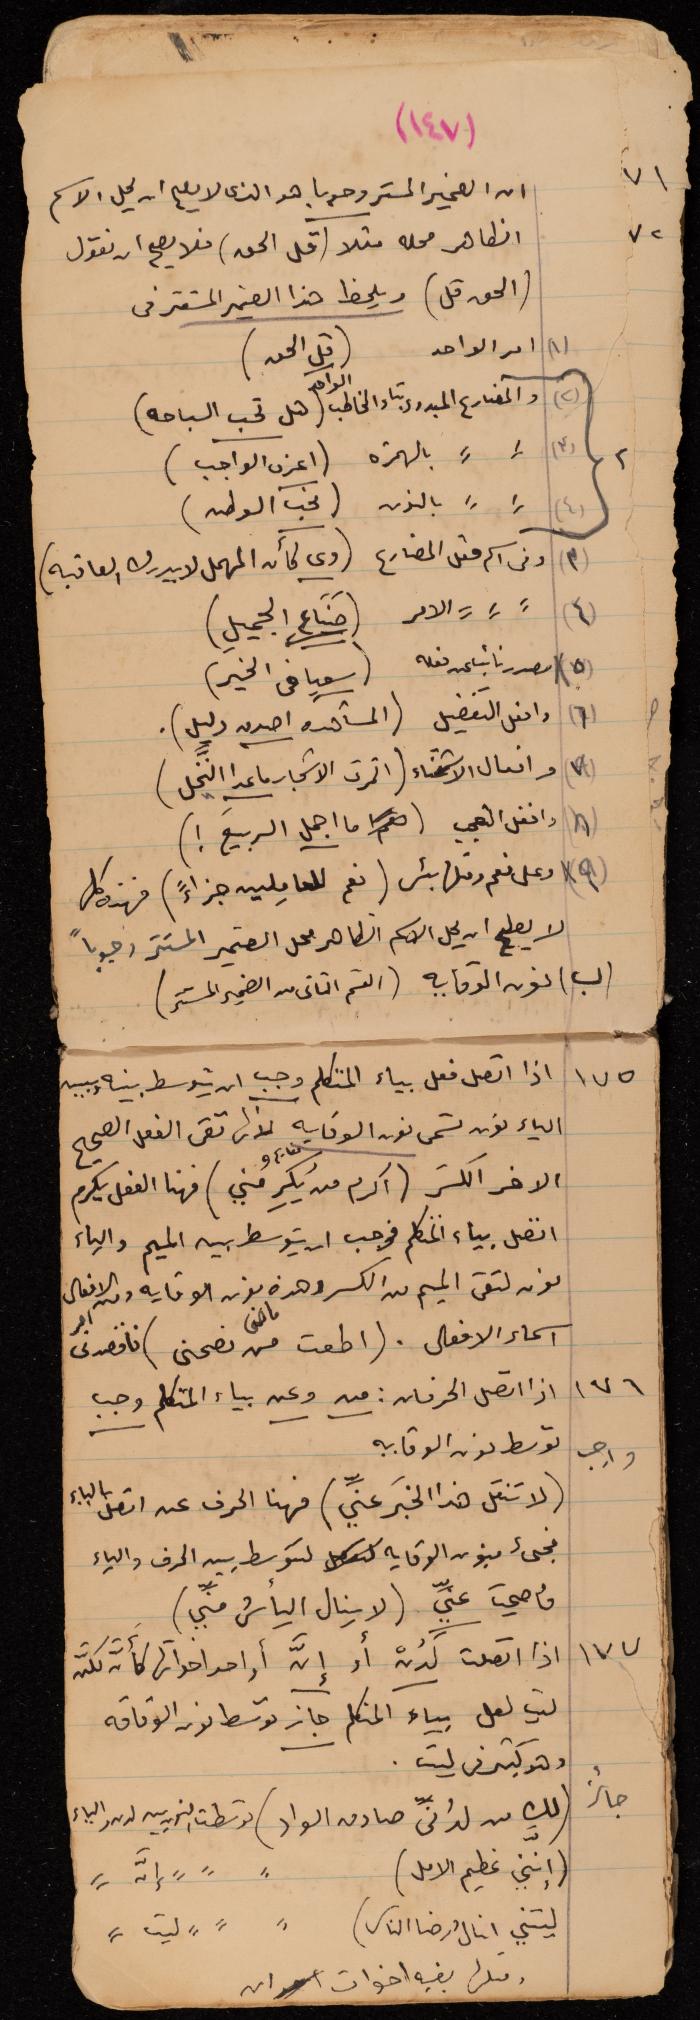 (١٤٧)
٧١ ان الضمير المستتر وجوبا هو الذى لا يصح ان يحل الاسم
٧٢ الظاهر محله مثلا (قل الحق) فلا يصح ان نقول
(الحق قل) ويلحظ هذا الضمير المستتر فى
(١) امر الواحد (قل الحق)
(٢) والمضارع المبدوء بتاء المخاطب الواحد (هل تحب السباحه)
(٣) 〃 〃 بالهمزه (اعرف الواجب)
٢
(٤) 〃 〃 بالنون (نحب الوطن)
(٣) وفى اسم فعل المضارع (وي كأن المهمل لا يدرك العاقبه)
(٤) 〃 〃 〃 الامر (الجميل)
(٥) مصدر نائبا عن فعله (سعيا فى الخير)
(٦) وافعل التفضيل (المشاهده اصدق دليل).
(٧) وافعال الاستثناء (اثمرت الاشجار ما عدا النخل)
(٨) وافعل التعجب (ما اجمل الربيعَ!)
(٩) وعلى نعم ومثلها بئس (نعم للعاملين جزاءً) فهذه كلها
لا يصلح ان يحل الاسم الظاهر محل الضمير المستتر وجوباً
(ب) نون الوقايه (القسم الثانى من الضمير المستتر)
١٧٥ اذا اتصل فعل بياء المتكلم وجب ان يتوسط بينه وبين
الياء نون تسمى نون الوقايه لأنها تقى الفعل الصحيح
الاخر الكسر (أكرم من يكرمُني) فهنا الفعل يكرم
اتصل بياء المتكلم فوجب ان يتوسط بين الميم والياء
نون لتقى الميم من الكسر وهذه نون الوقايه ومن الافعال
اسماء الافعال. (اطعت من نصحنى)
١٧٦ اذا اتصل الحرفان: من وعن بياء المتكلم وجب
واجب توسط نون الوقايه
(لا تنقل هذا الخبَر عنِّي) فهنا الحرف عن اتصل بالياء
فجئ بنون الوقايه لتتوسط بين الحرف والياء
فأصبحت عنِّي (لا ينال اليأسُ منِّي)
١٧٧ اذا اتصلت لَدُنْ أو إنَّ أو احد اخواتها كأنَّ لكنَّ
ليت لعل بياء المتكلم جاز توسط نون الوقاقه
وهو كثير فى ليت.
جائز (لك من لدُنِّي صادق الوداد) توسطت النون بين لدن والياء
(إنَّني عظيم الامل) 〃 〃 〃 إنَّ 〃
ليتني انال رضا الناس) 〃 〃 〃 ليت 〃
ومثلها بقيه اخوات ان